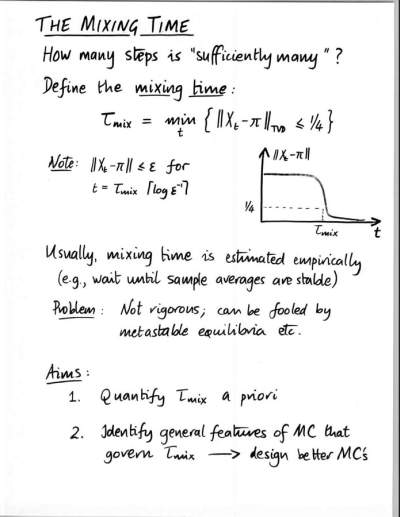 THE MIXING TIME
How many steps is "sufficiently many"?
Define the mixing time:
τmix = min t { ||Xt - π||TVD ≤ 1/4 }
Note: ||Xt - π|| ≤ ε for
t = τmix ⌈log ε⁻¹⌉
||Xt - π||
1/4
τmix
t
Usually, mixing time is estimated empirically
(e.g., wait until sample averages are stable)
Problem: Not rigorous; can be fooled by
metastable equilibria etc.
Aims:
1. Quantify τmix a priori
2. Identify general features of MC that
govern τmix → design better MC's